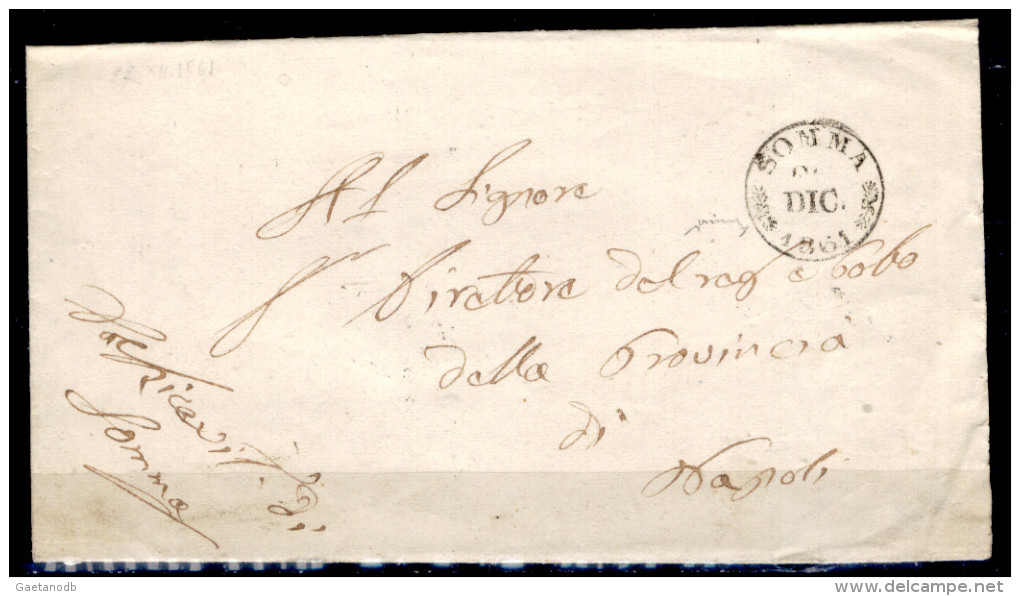 22.XII.1861
SOMMA
DIC.
1861
Al Signore
Sr Direttore del reg e bollo
della Provincia
di
Napoli
Dal Ricevit. di
Somma
Gaetanodb
delcampe.net